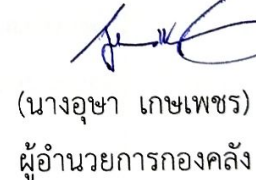 (นางอุษา เกษเพชร)
ผู้อำนวยการกองคลัง